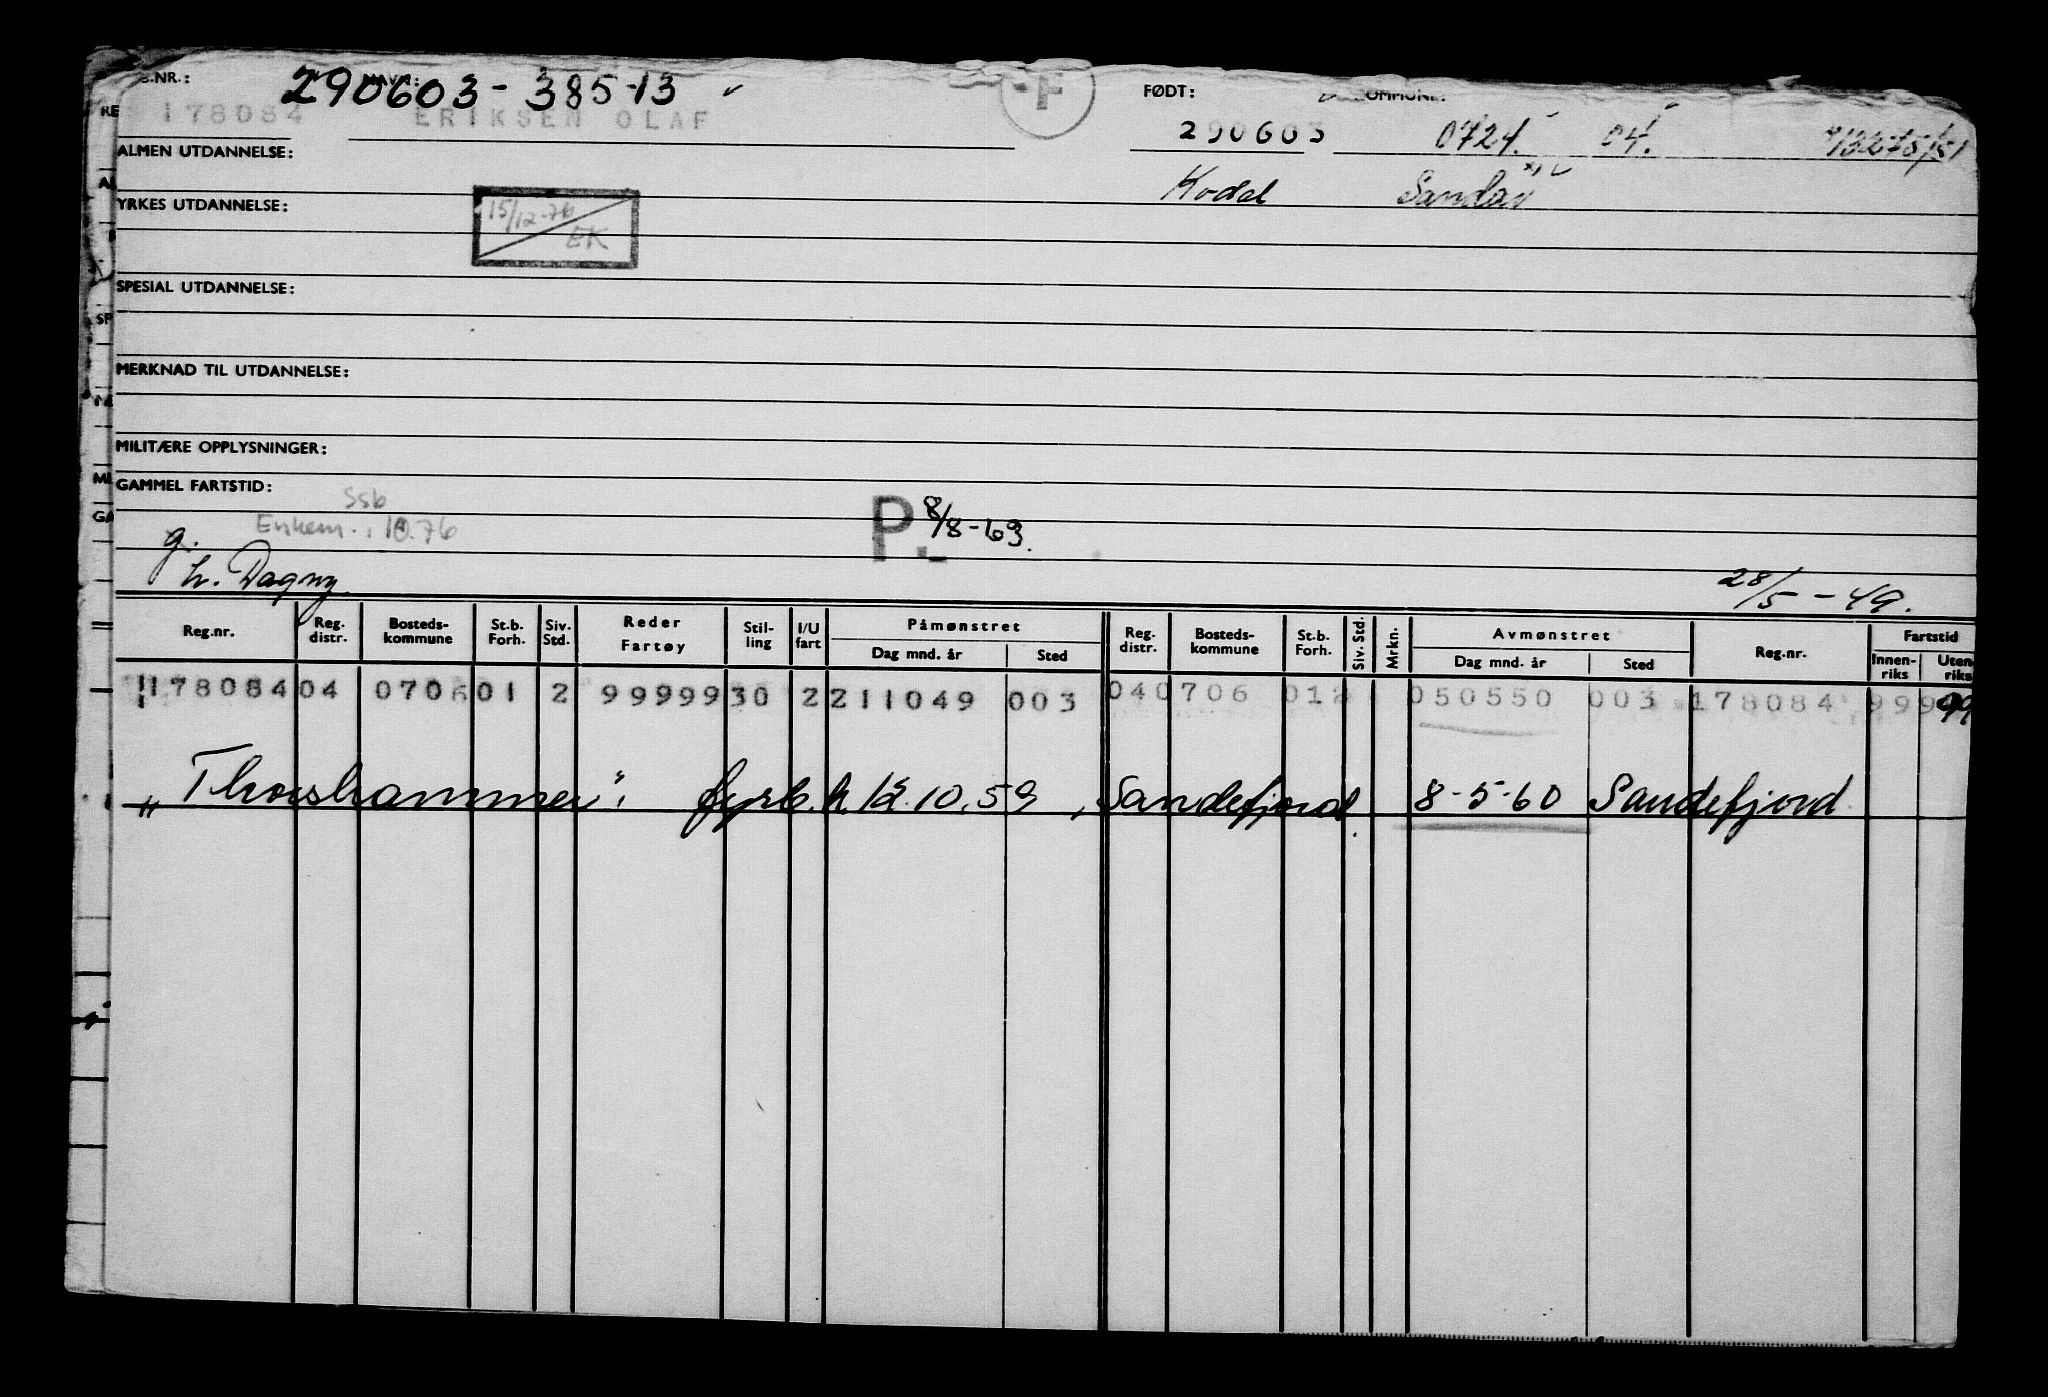 290603 - 385-13
F
FØDT:
178084 ERIKSEN OLAF 290603 0721. 04.
ALMEN UTDANNELSE:
Kodal Sandar
YRKES UTDANNELSE:
15/12-76
EK
SPESIAL UTDANNELSE:
MERKNAD TIL UTDANNELSE:
MILITÆRE OPPLYSNINGER:
GAMMEL FARTSTID:
Ssb
P. 8/8-63.
g.
h. Dagny. 28/5 - 49.
Reg.nr. Reg. distr. Bosteds-kommune St.b. Forh. Siv. Std. Reder Fartøy Stil-ling I/U fart Påmønstret Dag mnd. år Sted Reg. distr. Bosteds-kommune St.b. Forh. Siv. Std. Mrkn. Avmønstret Dag mnd. år Sted Reg.nr. Fartstid Innen-riks Uten riks
178084 04 0706 01 2 99999 30 2 211049 003 04 0706 012 050550 003 178084 99 99
"Thorshammer". fyrb. h. 12.10.59, Sandefjord. 8-5-60 Sandefjord.